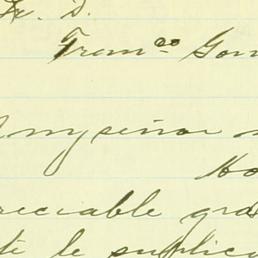 Sr. D.
Franco Gom
my señor
Ho
reciable gra
te le suplico